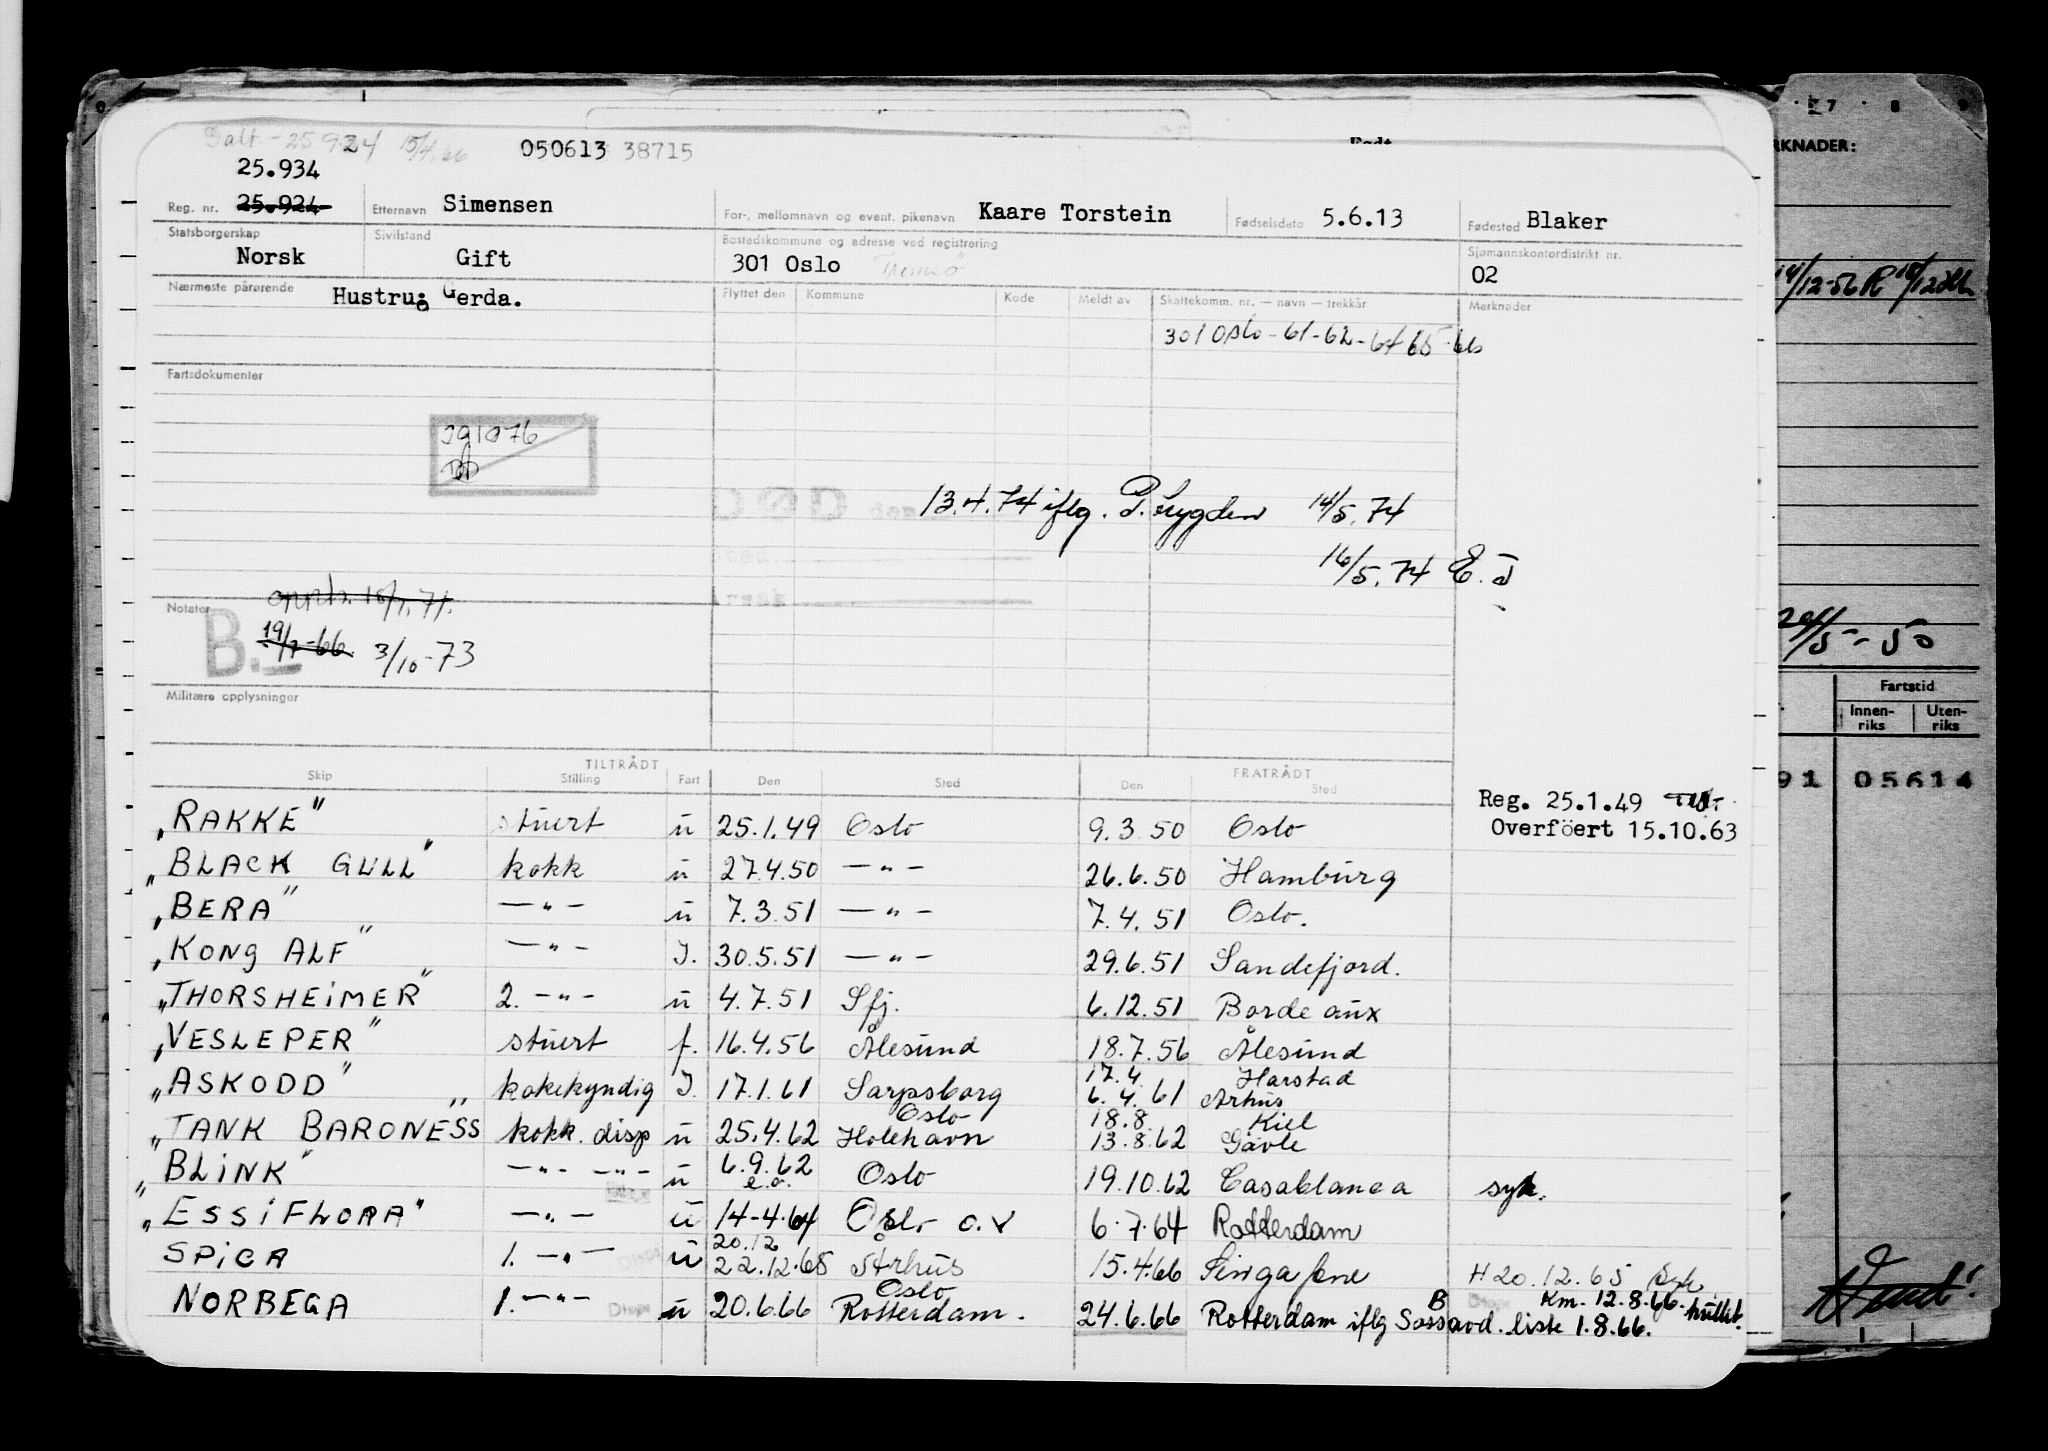 Galt - 25924 15/4.66
050613 38715
Født
25.934
Reg. nr. 25.924 Etternavn Simensen For-, mellomnavn og event. pikenavn Kaare Torstein Fødselsdato 5.6.13 Fødested Blaker
Statsborgerskap Norsk Sivilstand Gift Bostedskommune og adresse ved registrering 301 Oslo Sjømannskontordistrikt nr. 02
Nærmeste pårørende Hustru: Gerda. Flyttet den Kommune Kode Meldt av Skattekomm. nr. — navn — trekkår Merknader
301 Oslo - 61-62-64 65-66
Fartsdokumenter
291076
DØD den 13.4.74 iflg. P. Trygden 14/5.74
Sted
16/5.74 E. J
Årsak
Notater B.- 15/1.71.
19/7-66 3/10-73
Militære opplysninger
TILTRÅDT FRATRÅDT
Skip Stilling Fart Den Sted Den Sted
Reg. 25.1.49
Overföert 15.10.63
"RAKKE" stuert u 25.1.49 Oslo 9.3.50 Oslo
"BLACK GULL" kokk u 27.4.50 —"— 26.6.50 Hamburg
"BERA" —"— u 7.3.51 —"— 7.4.51 Oslo.
"KONG ALF" —"— I. 30.5.51 —"— 29.6.51 Sandefjord.
"THORSHEIMER" 2. —"— u 4.7.51 Sfj. 6.12.51 Bordeaux
"VESLEPER" stuert f. 16.4.56 Ålesund 18.7.56 Ålesund
17.4. Harstad
"ASKODD" kokekyndig I. 17.1.61 Sarpsborg 6.4.61 Århus
Oslo 18.8. Kiel
"TANK BARONESS" kokk. disp u 25.4.62 Holehavn 13.8.62 Gävle
"BLINK" —"— —"— u 6.9.62 Oslo 19.10.62 Casablanca syk.
e.o.
"ESSI FLORA" —"— u 14-4-64 Oslo o.v 6.7.64 Rotterdam
20.12
SPICA 1. —"— u 22.12.65 Århus 15.4.66 Singapore H 20.12.65 Syk
Oslo B Km. 12.8.66. hvittet.
NORBEGA 1. —"— Disp u 20.6.66 Rotterdam. 24.6.66 Rotterdam iflg Sassavd. liste 1.8.66.
7 8 9
RKNADER:
14/12-56 R
29/5 - 50
Fartstid
Innen- Uten-
riks riks
91 05614
Vend!